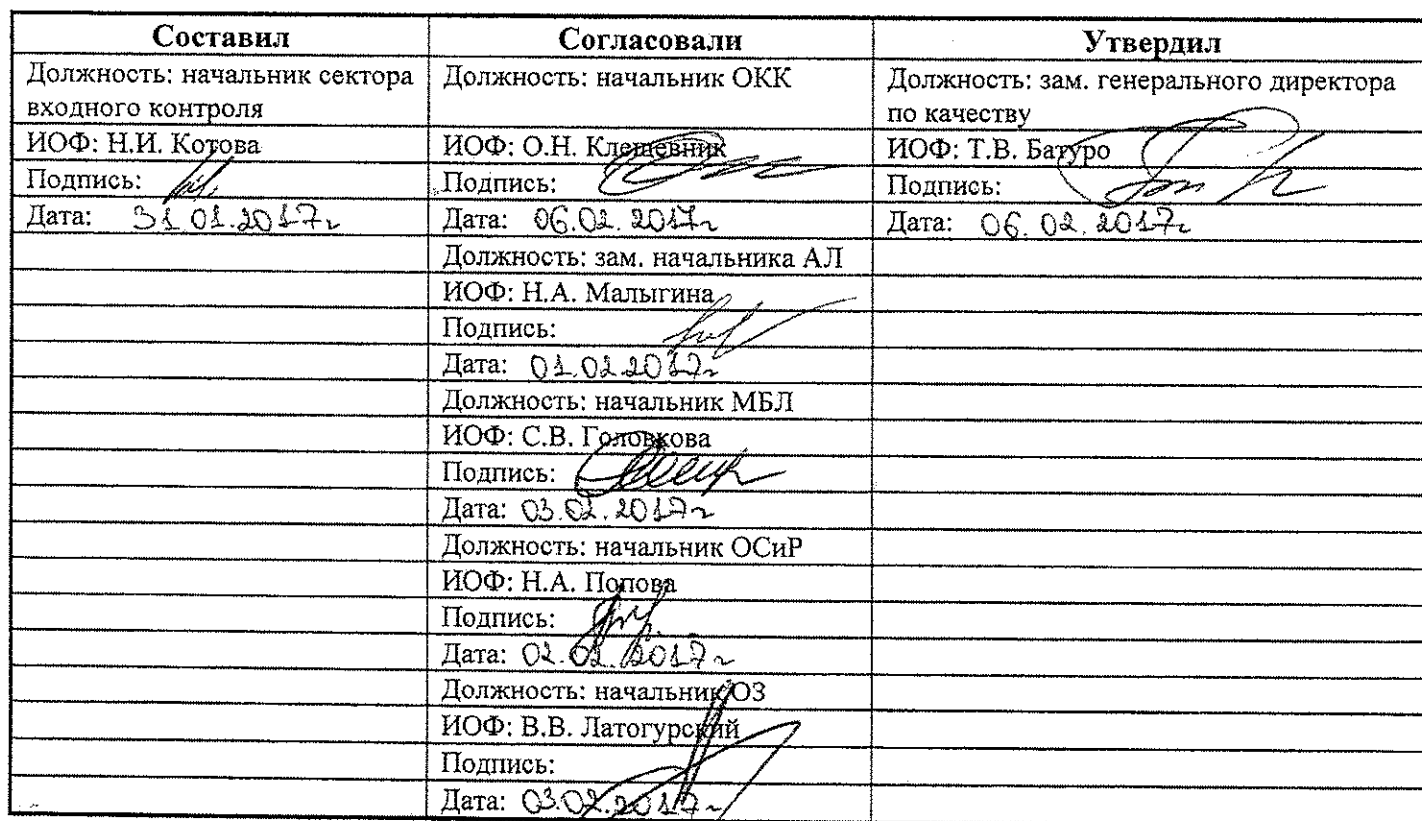 Составил Согласовали Утвердил
Должность: начальник сектора Должность: начальник ОКК Должность: зам. генерального директора
входного контроля по качеству
ИОФ: Н.И. Котова ИОФ: О.Н. Клещевник ИОФ: Т.В. Батуро
Подпись: Подпись: Подпись:
Дата: 31.01.2017г Дата: 06.02.2017г Дата: 06.02.2017г
Должность: зам. начальника АЛ
ИОФ: Н.А. Малыгина
Подпись:
Дата: 01.02.2017г
Должность: начальник МБЛ
ИОФ: С.В. Головкова
Подпись:
Дата: 03.02.2017г
Должность: начальник ОСиР
ИОФ: Н.А. Попова
Подпись:
Дата: 02.02.2017г
Должность: начальник ОЗ
ИОФ: В.В. Латогурский
Подпись:
Дата: 03.02.2017г